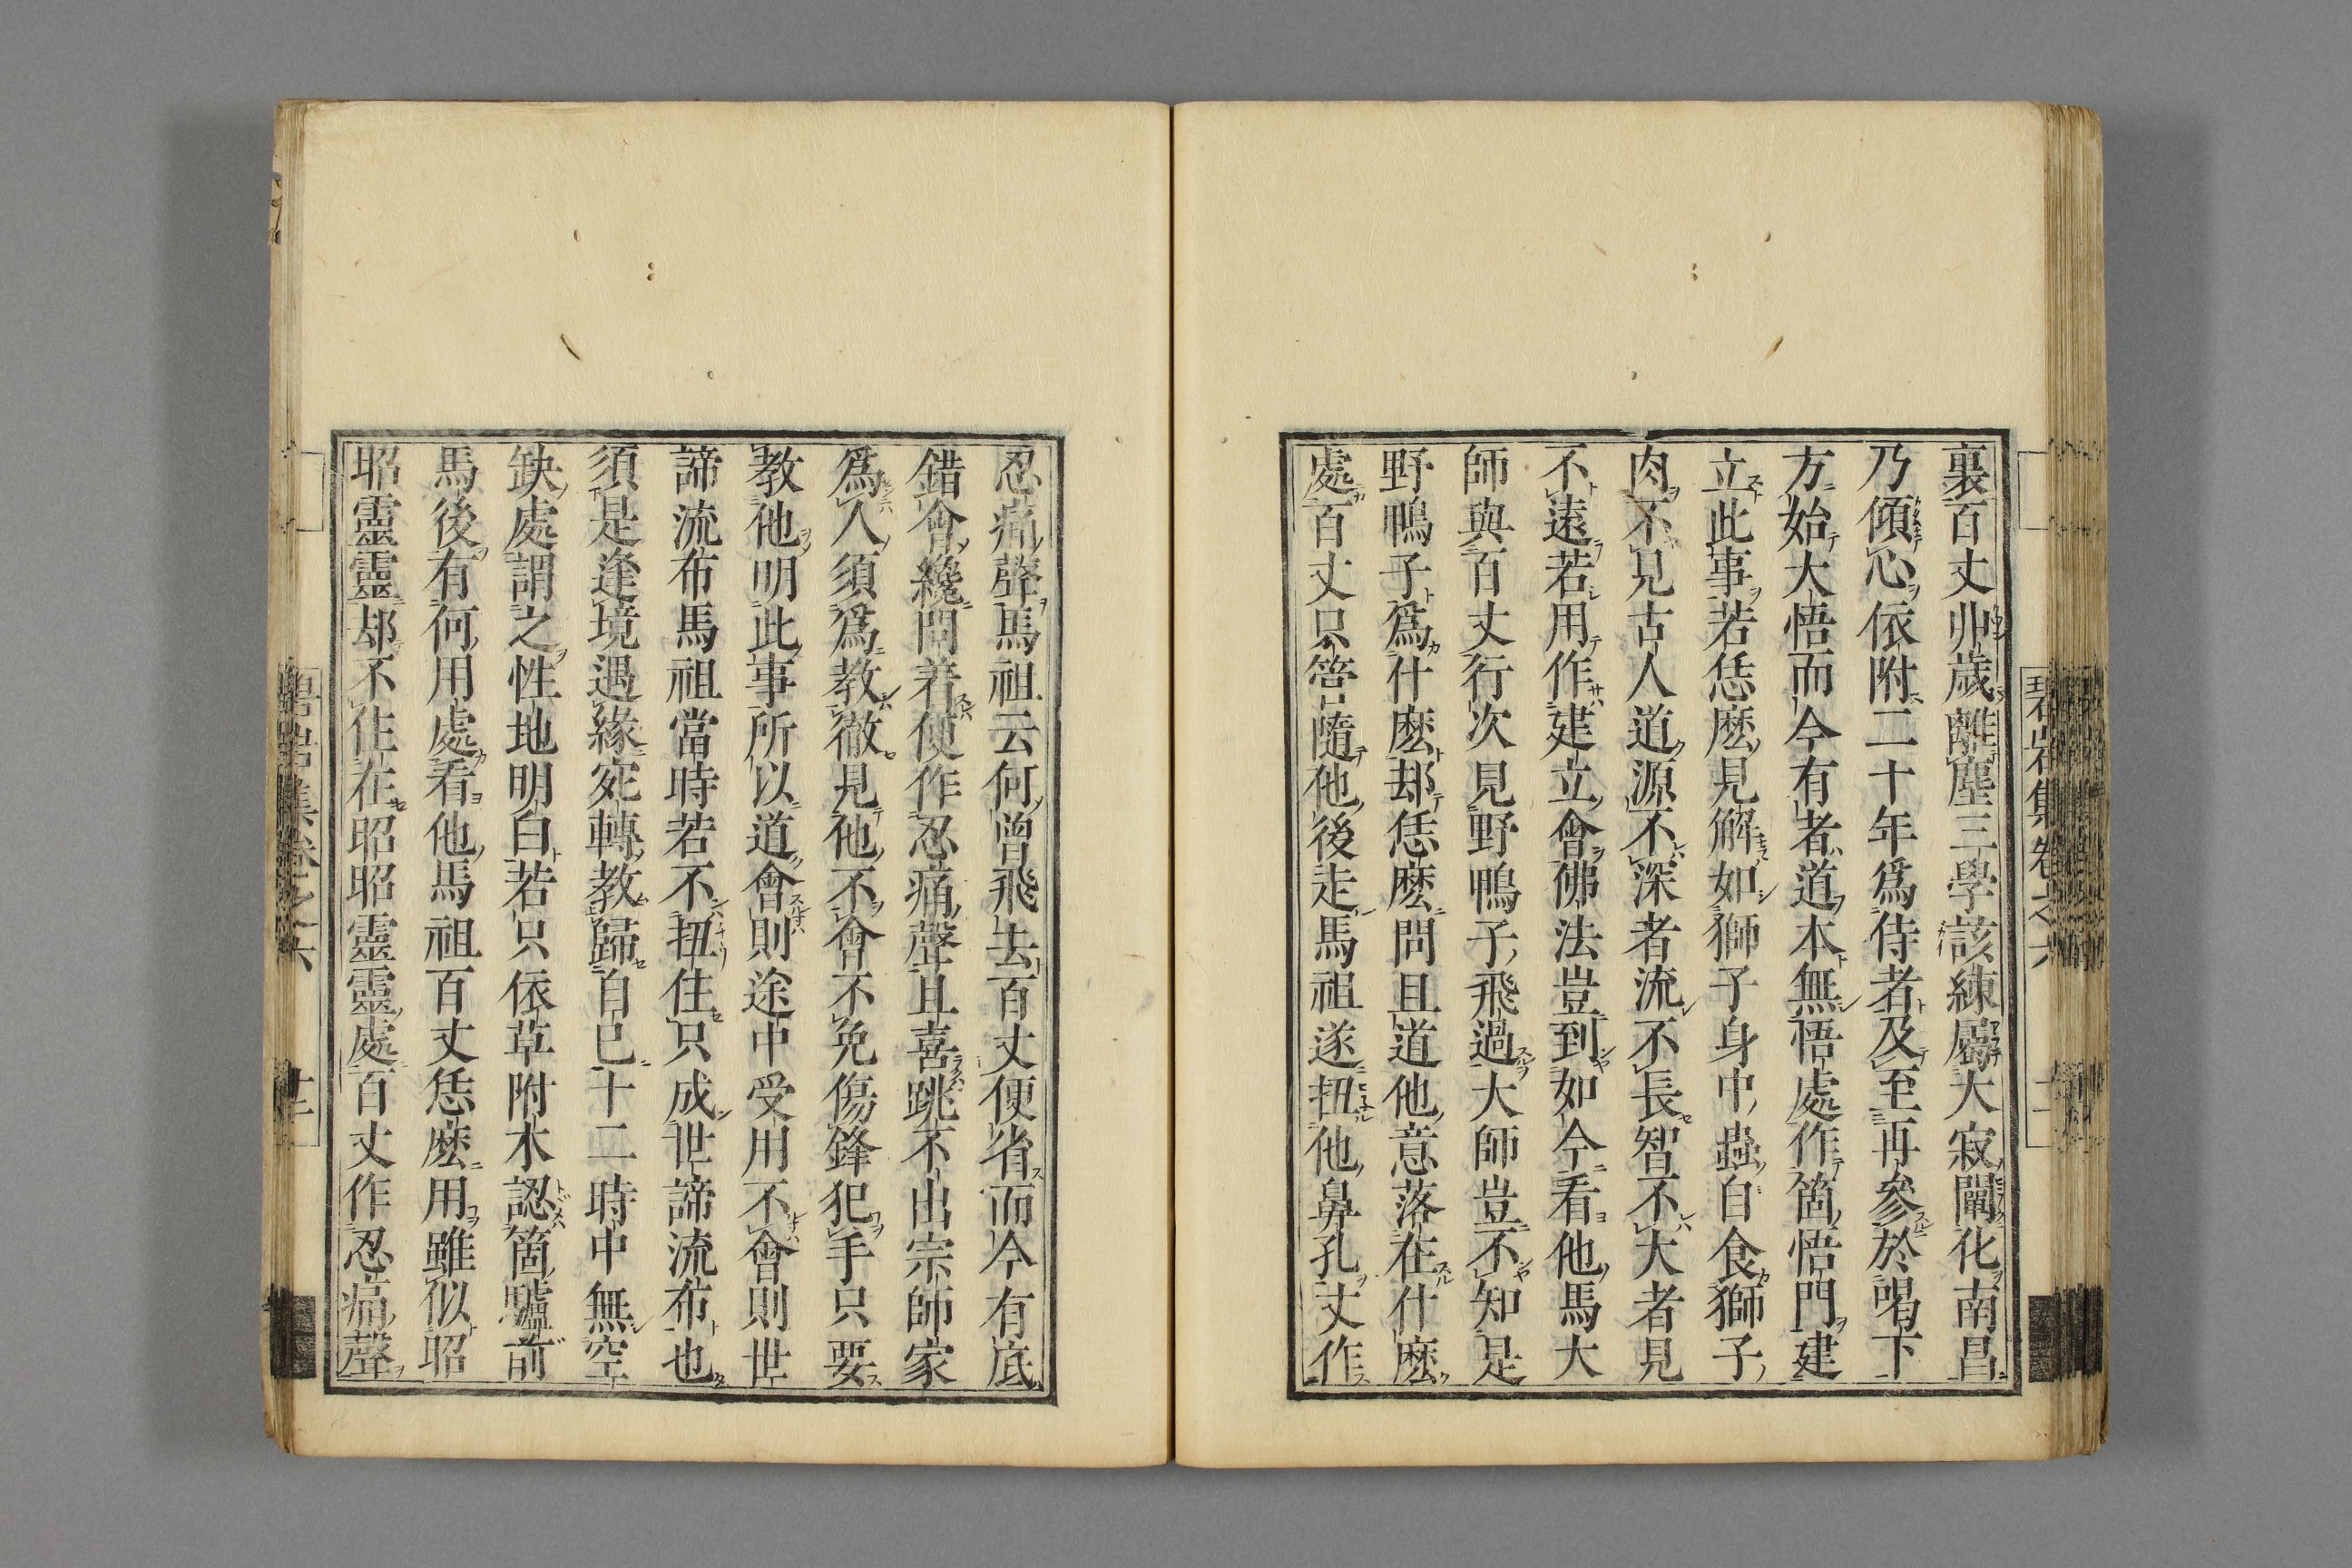 裏百丈丱歲離塵三學該練屬大寂闡化南昌
乃傾心依附二十年爲侍者及至再參於喝下
方始大悟而今有者道本無悟處作箇悟門建
立此事若恁麼見解如獅子身中蟲自食獅子
肉不見古人道源不深者流不長智不大者見
不遠若用作建立會佛法豈到如今看他馬大
師與百丈行次見野鴨子飛過大師豈不知是
野鴨子爲什麼却恁麼問且道他意落在什麼
處百丈只管隨他後走馬祖遂扭他鼻孔丈作
忍痛聲馬祖云何曾飛去百丈便省而今有底
錯會纔問着便作忍痛聲且喜跳不出宗師家
爲人須爲教徹見他不會不免傷鋒犯手只要
教他明此事所以道會則途中受用不會則世
諦流布馬祖當時若不扭住只成世諦流布也
須是逢境遇緣宛轉教歸自己十二時中無空
缺處謂之性地明白若只依草附木認箇驢前
馬後有何用處看他馬祖百丈恁麼用雖似昭
昭靈靈却不住在昭昭靈靈處百丈作忍痛聲
碧岩集卷之六